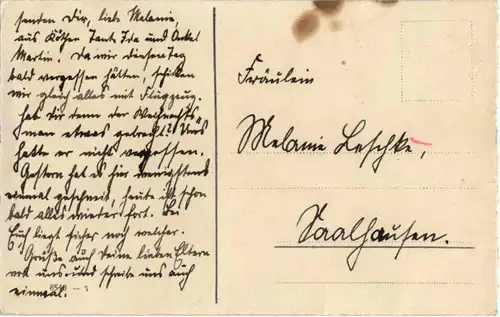 senden Dir, liebe Melanie,
aus Köthen Tante Ida und Onkel
Martin. Da wir diesen Tag
bald vergessen hätten, schicken
wir gleich alles mit Flugzeug.
Hat Dir denn der Weihnachts-
man etwas gebracht? Uns
hatte er nicht vergessen.
Gestern hat es hier wenigstens
einmal geschneit, heute ist schon
bald alles wieder fort. Bei
Euch liegt sicher noch welcher.
Grüße auch Deine lieben Eltern
von uns und schreibe uns auch
einmal.
8540 - 1
Fräulein
Melanie Leschke,
Saalhausen.